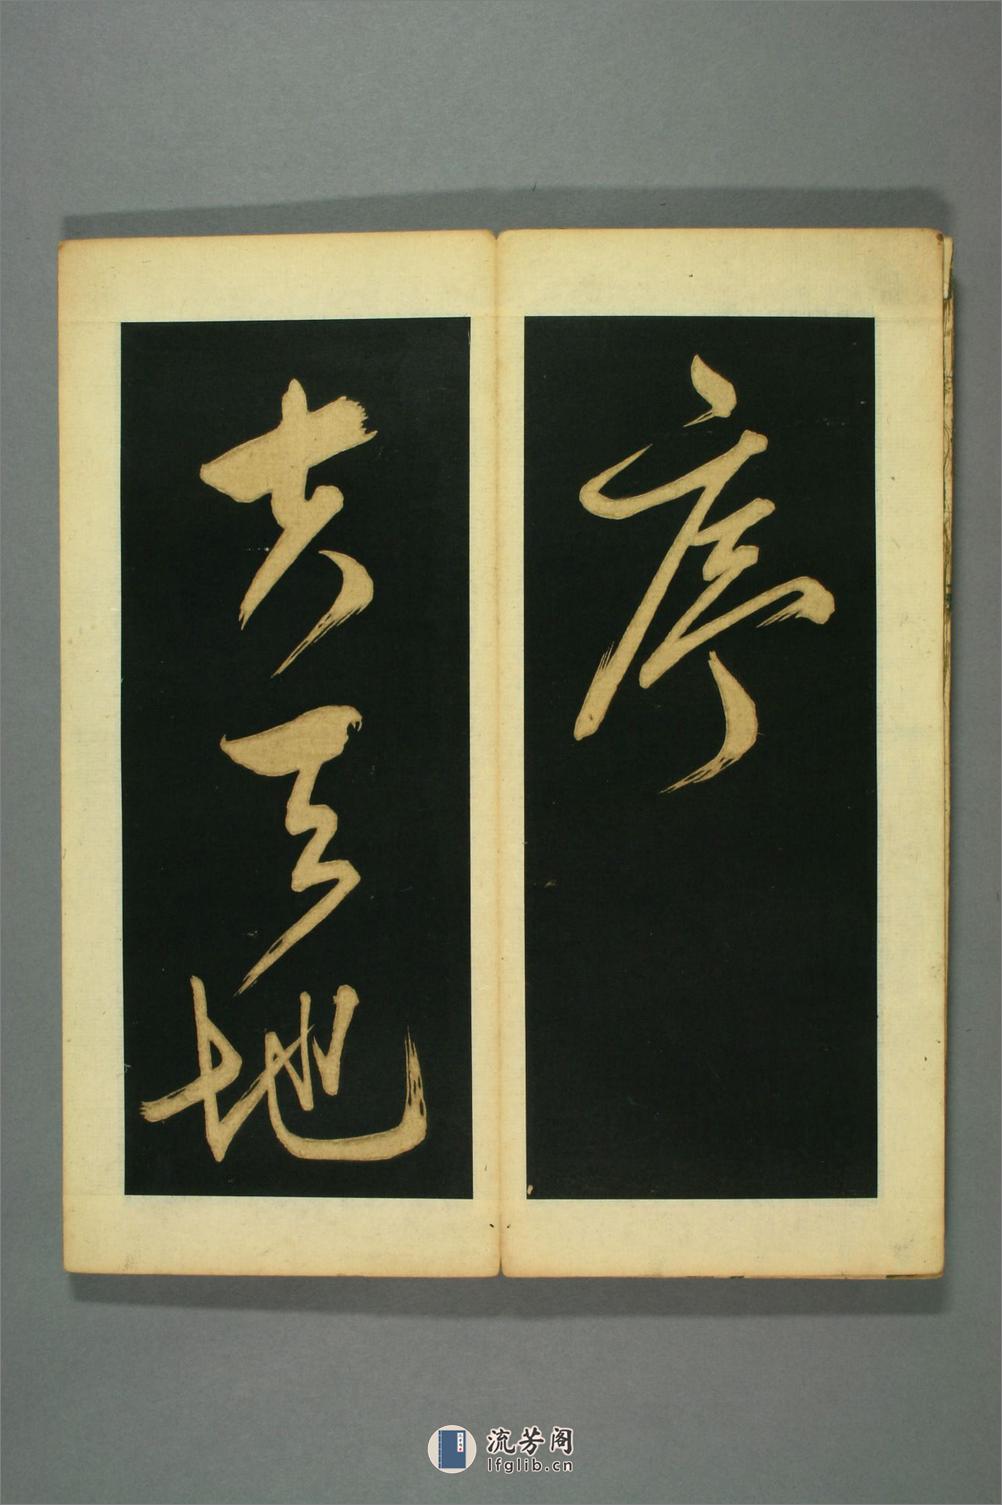 序
夫天地
流芳阁
lfglib.cn